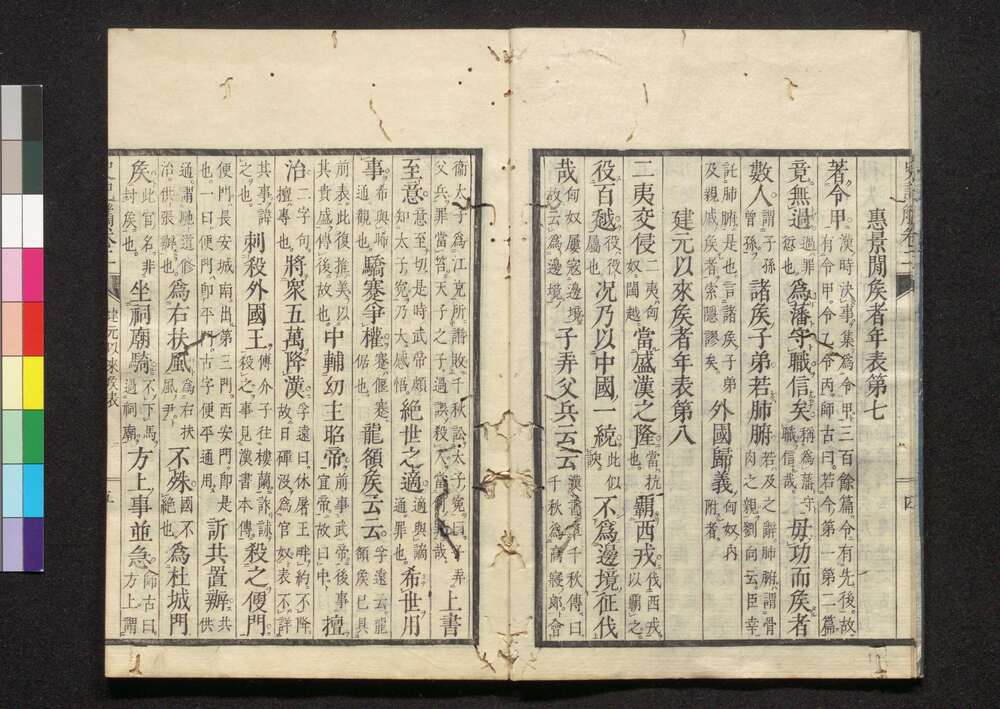 惠景閒矦者年表第七
著令甲漢時決事集爲令甲三百餘篇令有先後故有令甲令乙令丙師古曰若今第一第二篇
竟無過過罪愆也爲藩守職信矣稱爲藩守職信哉毋功而矦者
數人謂子孫曾孫諸矦子弟若肺腑若及之辭肺腑謂骨肉之親劉向云臣幸
託肺腑是也言諸矦子弟及親戚矦者索隱謬矣外國歸義匈奴內附者
建元以來矦者年表第八
二夷交侵二夷匈奴閩越當盛漢之隆當抗也霸西戎伐西戎以霸之
役百越役役屬也况乃以中國一統此似諛不爲邊境征伐
哉匈奴屢寇邊境故云爲邊境子弄父兵云云漢書車千秋傳曰千秋爲高寢郞會
衞太子爲江充所譖敗千秋訟太子寃曰子弄父兵罪當笞天子之子過誤殺人當何罪哉上書
至意意至切是時武帝頗知太子寃乃大感悟絕世之適適與謫通罪也希世用
事希與睎通觀也驕蹇爭權蹇偃蹇倨也龍頟矦云云字遠云龍頟矦已具
前表此復推美以其貴盛傳後故也中輔幼主昭帝前事武帝後事宣帝故曰中擅
治二字句擅專也將衆五萬降漢字遠曰休屠王畔約不降故日磾沒爲官奴表不詳
其事諱之也刺殺外國王傅介子往樓蘭訴誅殺之事見漢書本傳殺之便門
便門長安城南出第三門西安門卽是也一曰便門卽平門古字便平通用訢共置辦共供
通肅馳道修治供張辦也爲右扶風爲右扶風尹不殊國不絕也爲杜城門
矦此官名非封矦也坐祠廟騎坐不下馬過祠廟方上事並急師古曰方上謂
四
建元以來矦表
五